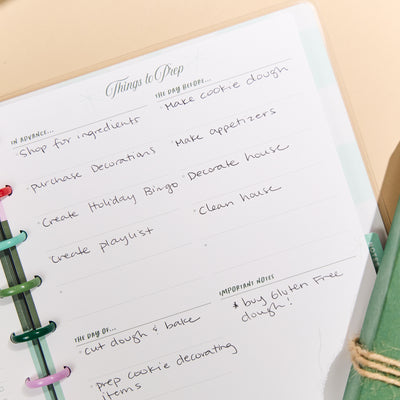 Things to Prep
IN ADVANCE...
Shop for ingredients
purchase Decorations
Create Holiday Bingo
Create playlist
THE DAY BEFORE...
Make cookie dough
Make appetizers
Decorate house
Clean house
THE DAY OF...
cut dough & bake
prep cookie decorating
items
IMPORTANT NOTES
* buy Gluten Free
dough!
NOTES